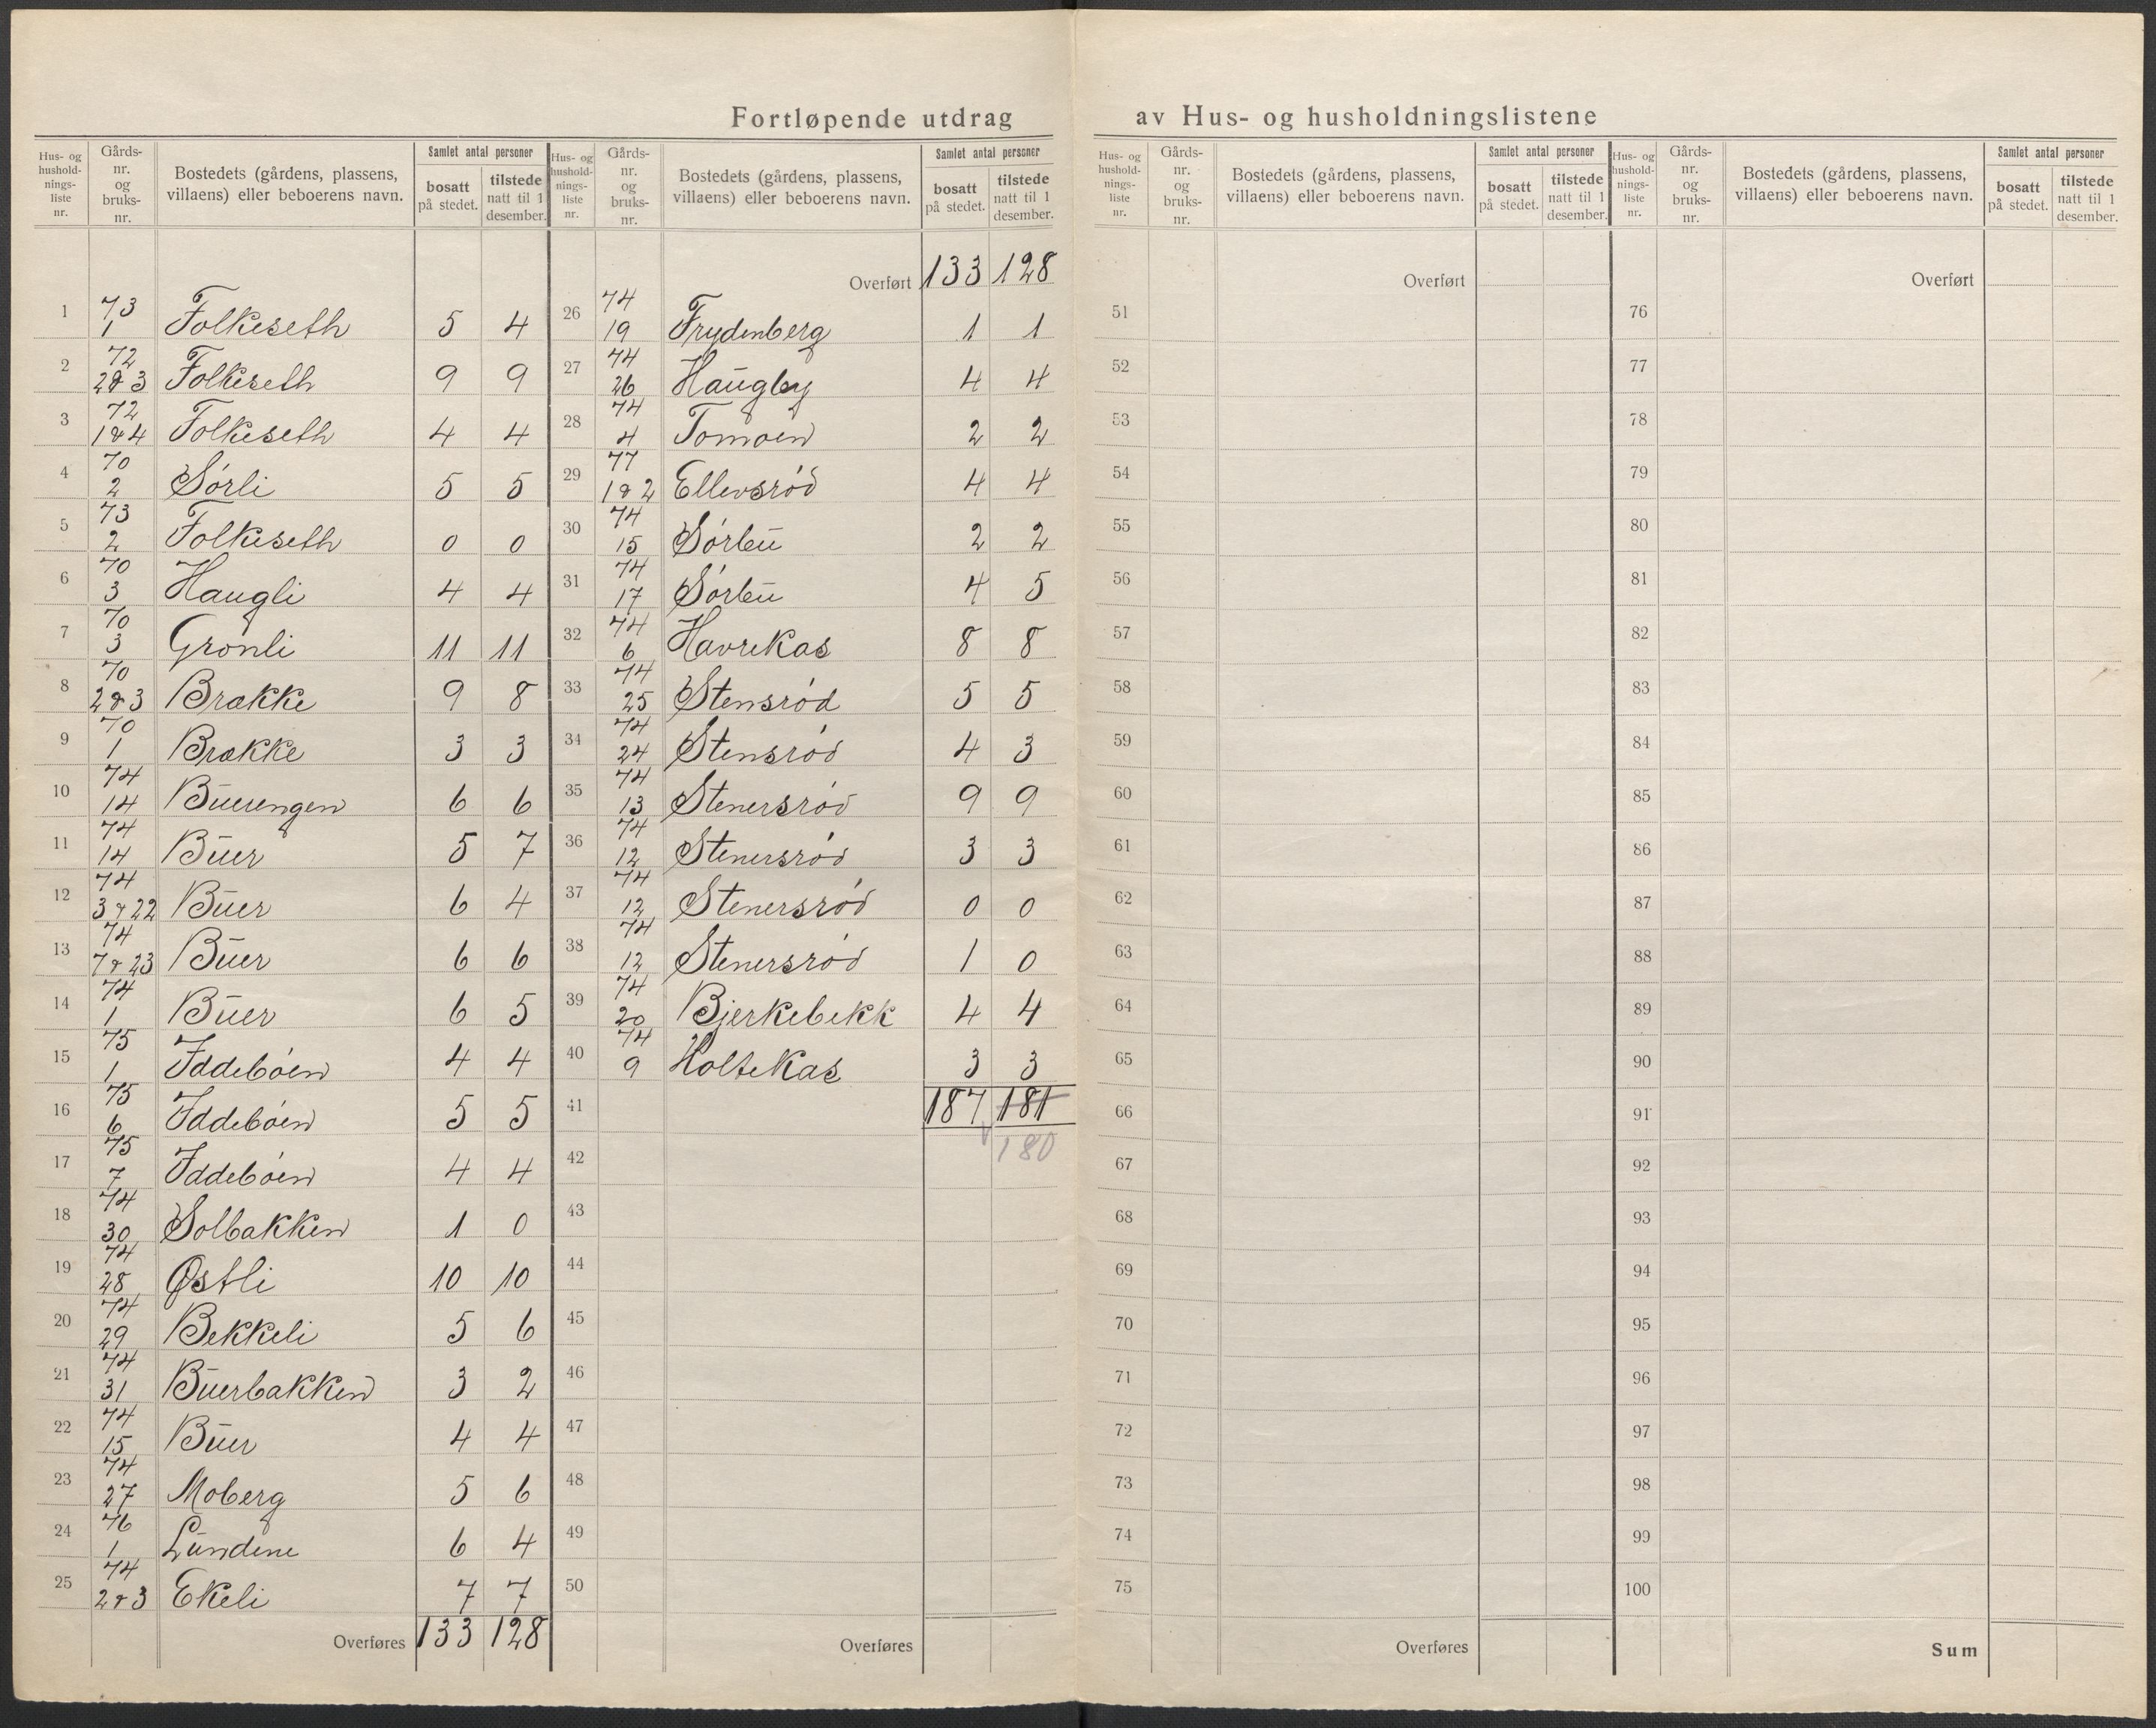 Fortløpende utdrag av Hus- og husholdningslistene
Hus- og husholdnings-liste nr. | Gårds-nr. og bruks-nr. | Bostedets (gårdens, plassens, villaens) eller beboerens navn. | Samlet antal personer | bosatt på stedet. | tilstede natt til 1 desember.
1 73/1 Folkeseth 5 4
2 72/2&3 Folkeseth 9 9
3 72/1&4 Folkeseth 4 4
4 70/2 Sørli 5 5
5 73/2 Folkeseth 0 0
6 70/3 Haugli 4 4
7 70/3 Grønli 11 11
8 70/2&3 Brække 9 8
9 70/1 Brække 3 3
10 74/14 Buerengen 6 6
11 74/14 Buer 5 7
12 74/3&22 Buer 6 4
13 74/7&23 Buer 6 6
14 74/1 Buer 6 5
15 75/1 Iddebøen 4 4
16 75/6 Iddebøen 5 5
17 75/7 Iddebøen 4 4
18 74/30 Solbakken 1 0
19 74/28 Østli 10 10
20 74/29 Bekkeli 5 6
21 74/31 Buerbakken 3 2
22 74/15 Buer 4 4
23 74/27 Moberg 5 6
24 76/1 Lundene 6 4
25 74/2&3 Ekeli 7 7
Overføres 133 128
Hus- og husholdnings-liste nr. | Gårds-nr. og bruks-nr. | Bostedets (gårdens, plassens, villaens) eller beboerens navn. | Samlet antal personer | bosatt på stedet. | tilstede natt til 1 desember.
Overført 133 128
26 74/19 Frydenberg 1 1
27 74/26 Haugby 4 4
28 74/4 Tomoen 2 2
29 77/1&2 Ellevsrød 4 4
30 74/15 Sørbu 2 2
31 74/17 Sørbu 4 5
32 74/6 Havrekas 8 8
33 74/25 Stensrød 5 5
34 74/24 Stensrød 4 3
35 74/13 Stenersrød 9 9
36 74/12 Stenersrød 3 3
37 74/12 Stenersrød 0 0
38 74/12 Stenersrød 1 0
39 74/20 Bjerkebekk 4 4
40 74/9 Holtekas 3 3
41 187 181
42 180
43
44
45
46
47
48
49
50
Overføres
Hus- og husholdnings-liste nr. | Gårds-nr. og bruks-nr. | Bostedets (gårdens, plassens, villaens) eller beboerens navn. | Samlet antal personer | bosatt på stedet. | tilstede natt til 1 desember.
Overført
51
52
53
54
55
56
57
58
59
60
61
62
63
64
65
66
67
68
69
70
71
72
73
74
75
Overføres
Hus- og husholdnings-liste nr. | Gårds-nr. og bruks-nr. | Bostedets (gårdens, plassens, villaens) eller beboerens navn. | Samlet antal personer | bosatt på stedet. | tilstede natt til 1 desember.
Overført
76
77
78
79
80
81
82
83
84
85
86
87
88
89
90
91
92
93
94
95
96
97
98
99
100
Sum